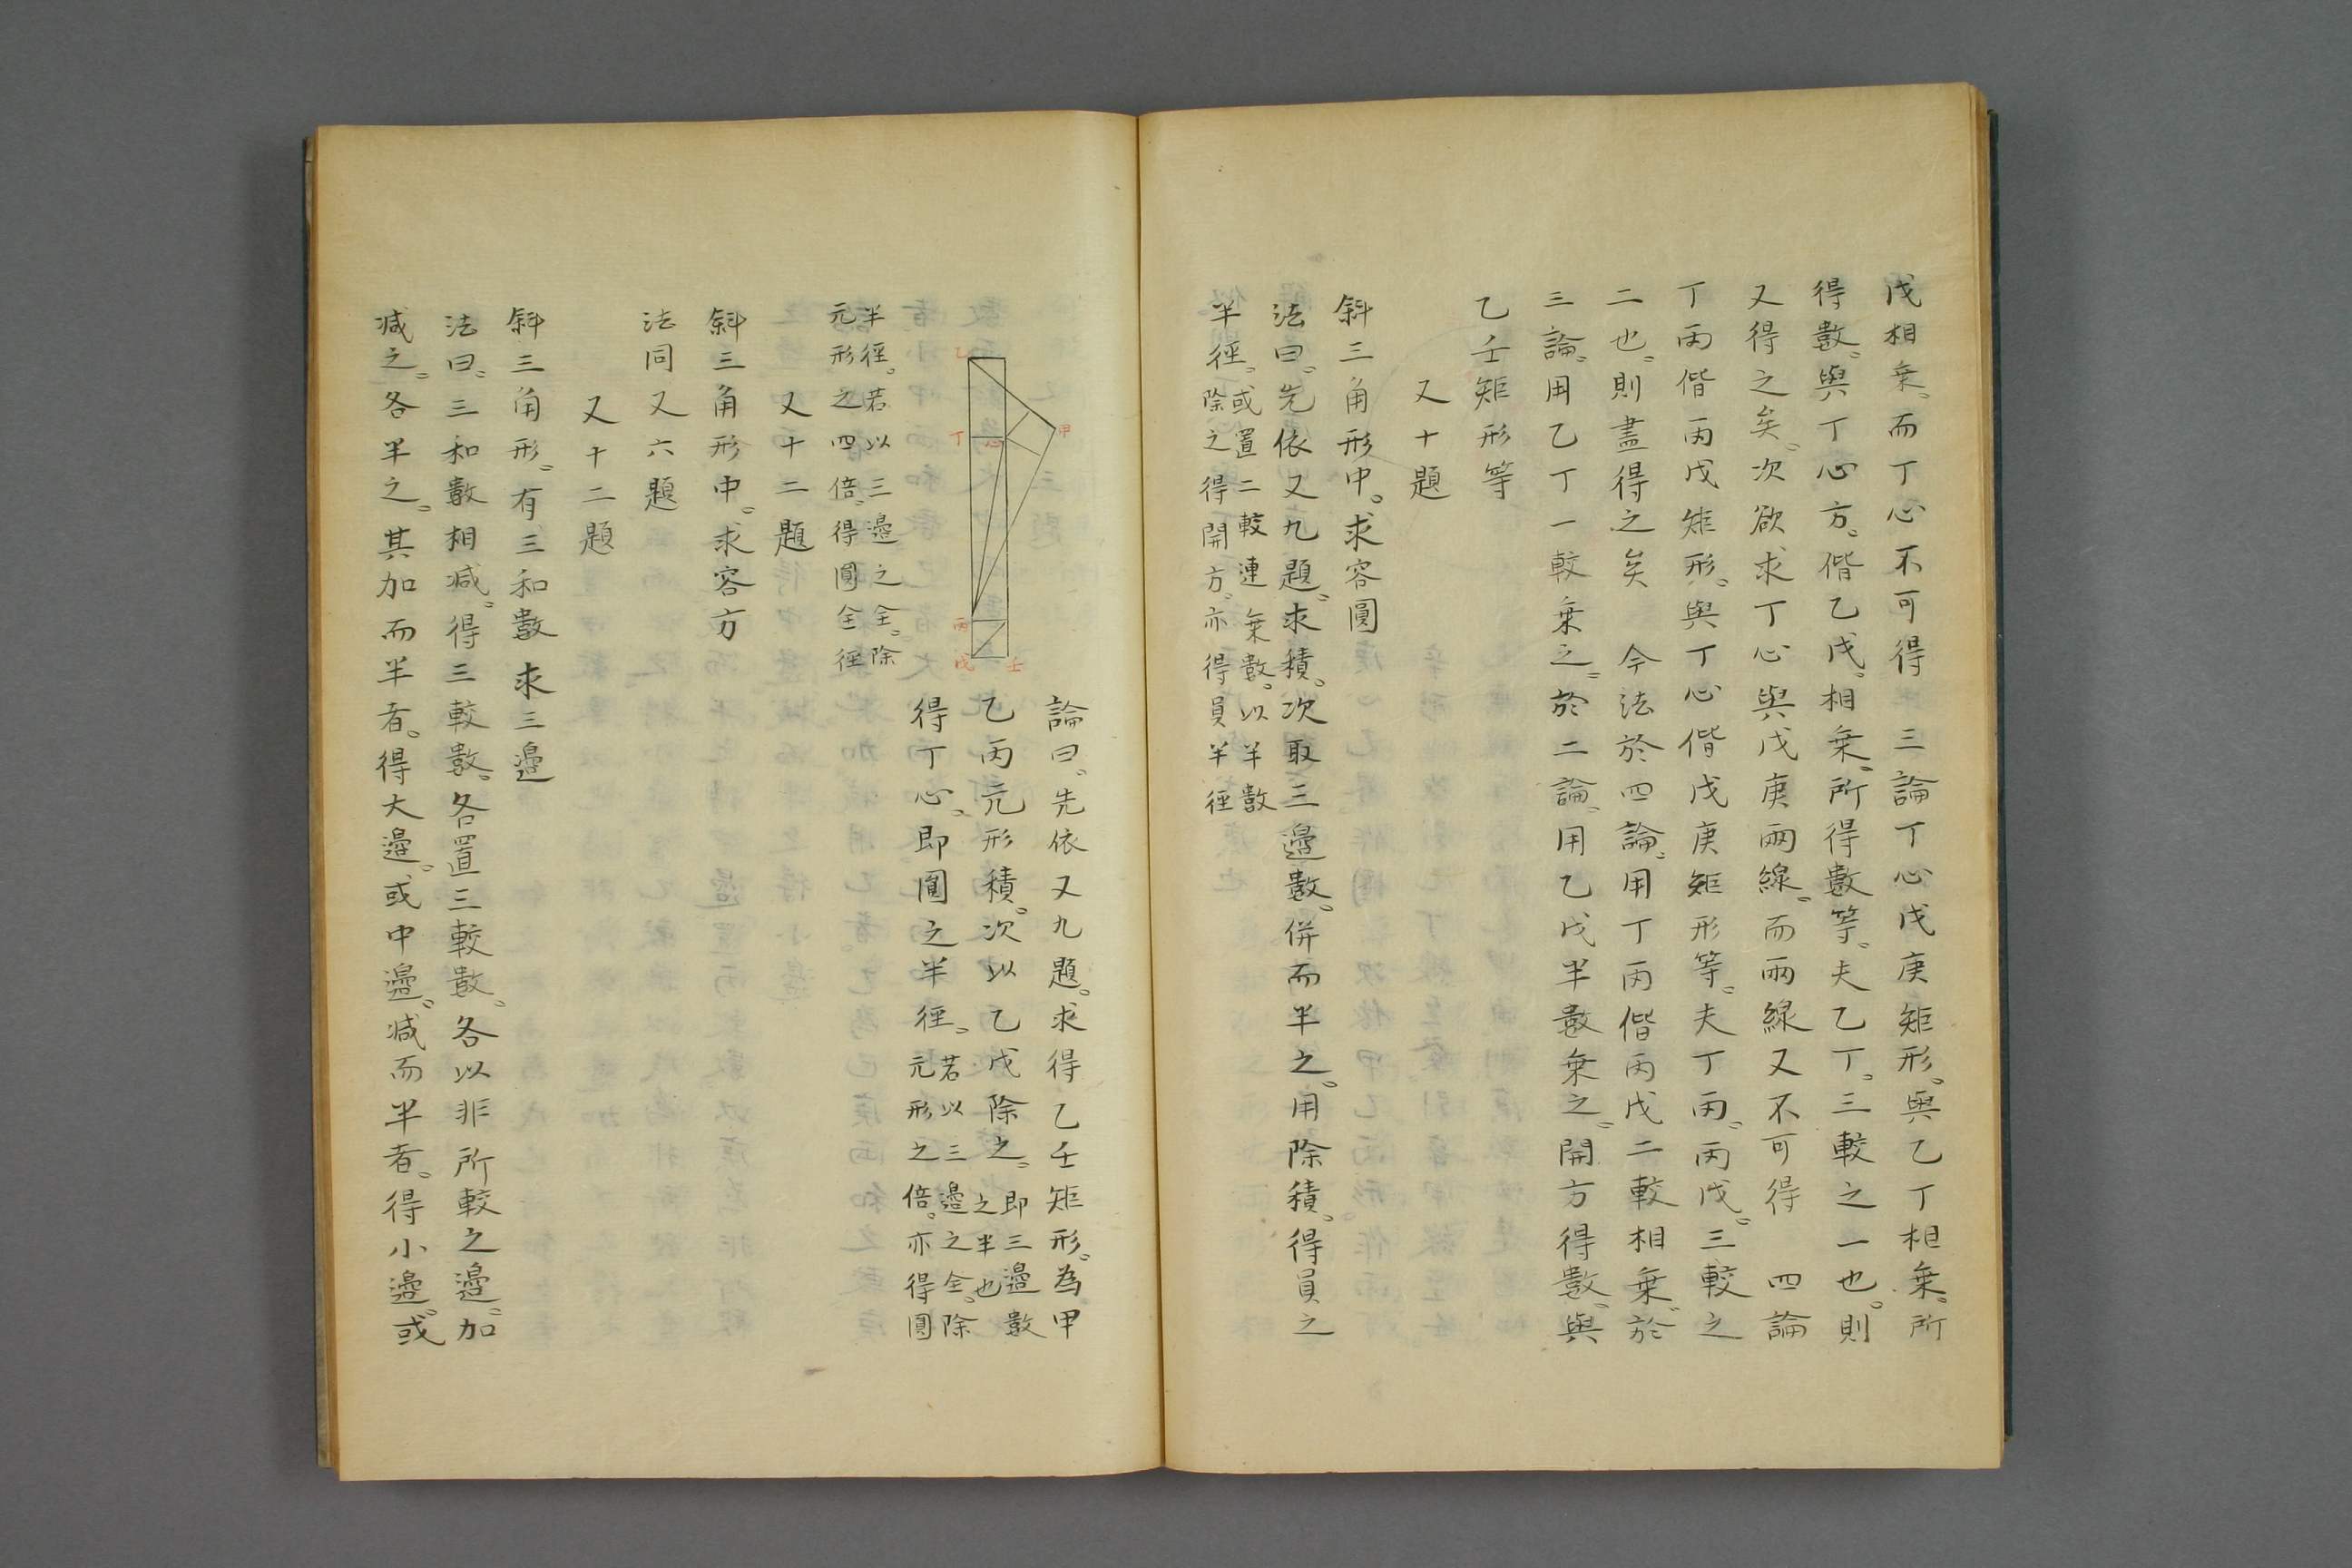 戊相乗。而丁心不可得　三論丁心戊庚矩形。與乙丁相乗。所
得數。與丁心方。偕乙戊。相乗。所得數等。夫乙丁。三較之一也。則
又得之矣。次欲求丁心與戊庚兩線。而兩線又不可得　四論
丁丙偕丙戊矩形。與丁心偕戊庚矩形等。夫丁丙。丙戊。三較之
二也。則盡得之矣　今法於四論。用丁丙偕丙戊二較相乗。於
三論。用乙丁一較乗之。於二論。用乙戊半數乗之。開方得數。與
乙壬矩形等
又十題
斜三角形中。求容圓
法曰。先依又九題。求積。次取三邉數。併而半之。用除積。得員之
半徑。或置二較連乗數。以半數
除之得開方。亦得員半徑
論曰。先依又九題。求得乙壬矩形。為甲
乙丙元形積。次以乙戊除之。即三邉數
之半也
得丁心。即圓之半徑。若以三邉之全。除
元形之倍。亦得圓
半徑。若以三邉之全。除
元形之四倍。得圓全徑
乙
甲
丁
心
丙
戊
壬
又十二題
斜三角形中。求容方
法同又六題
又十二題
斜三角形。有三和數求三邉
法曰。三和數相减。得三較數。各置三較數。各以非所較之邉。加
减之。各半之。其加而半者。得大邉。或中邉。减而半者。得小邉。或